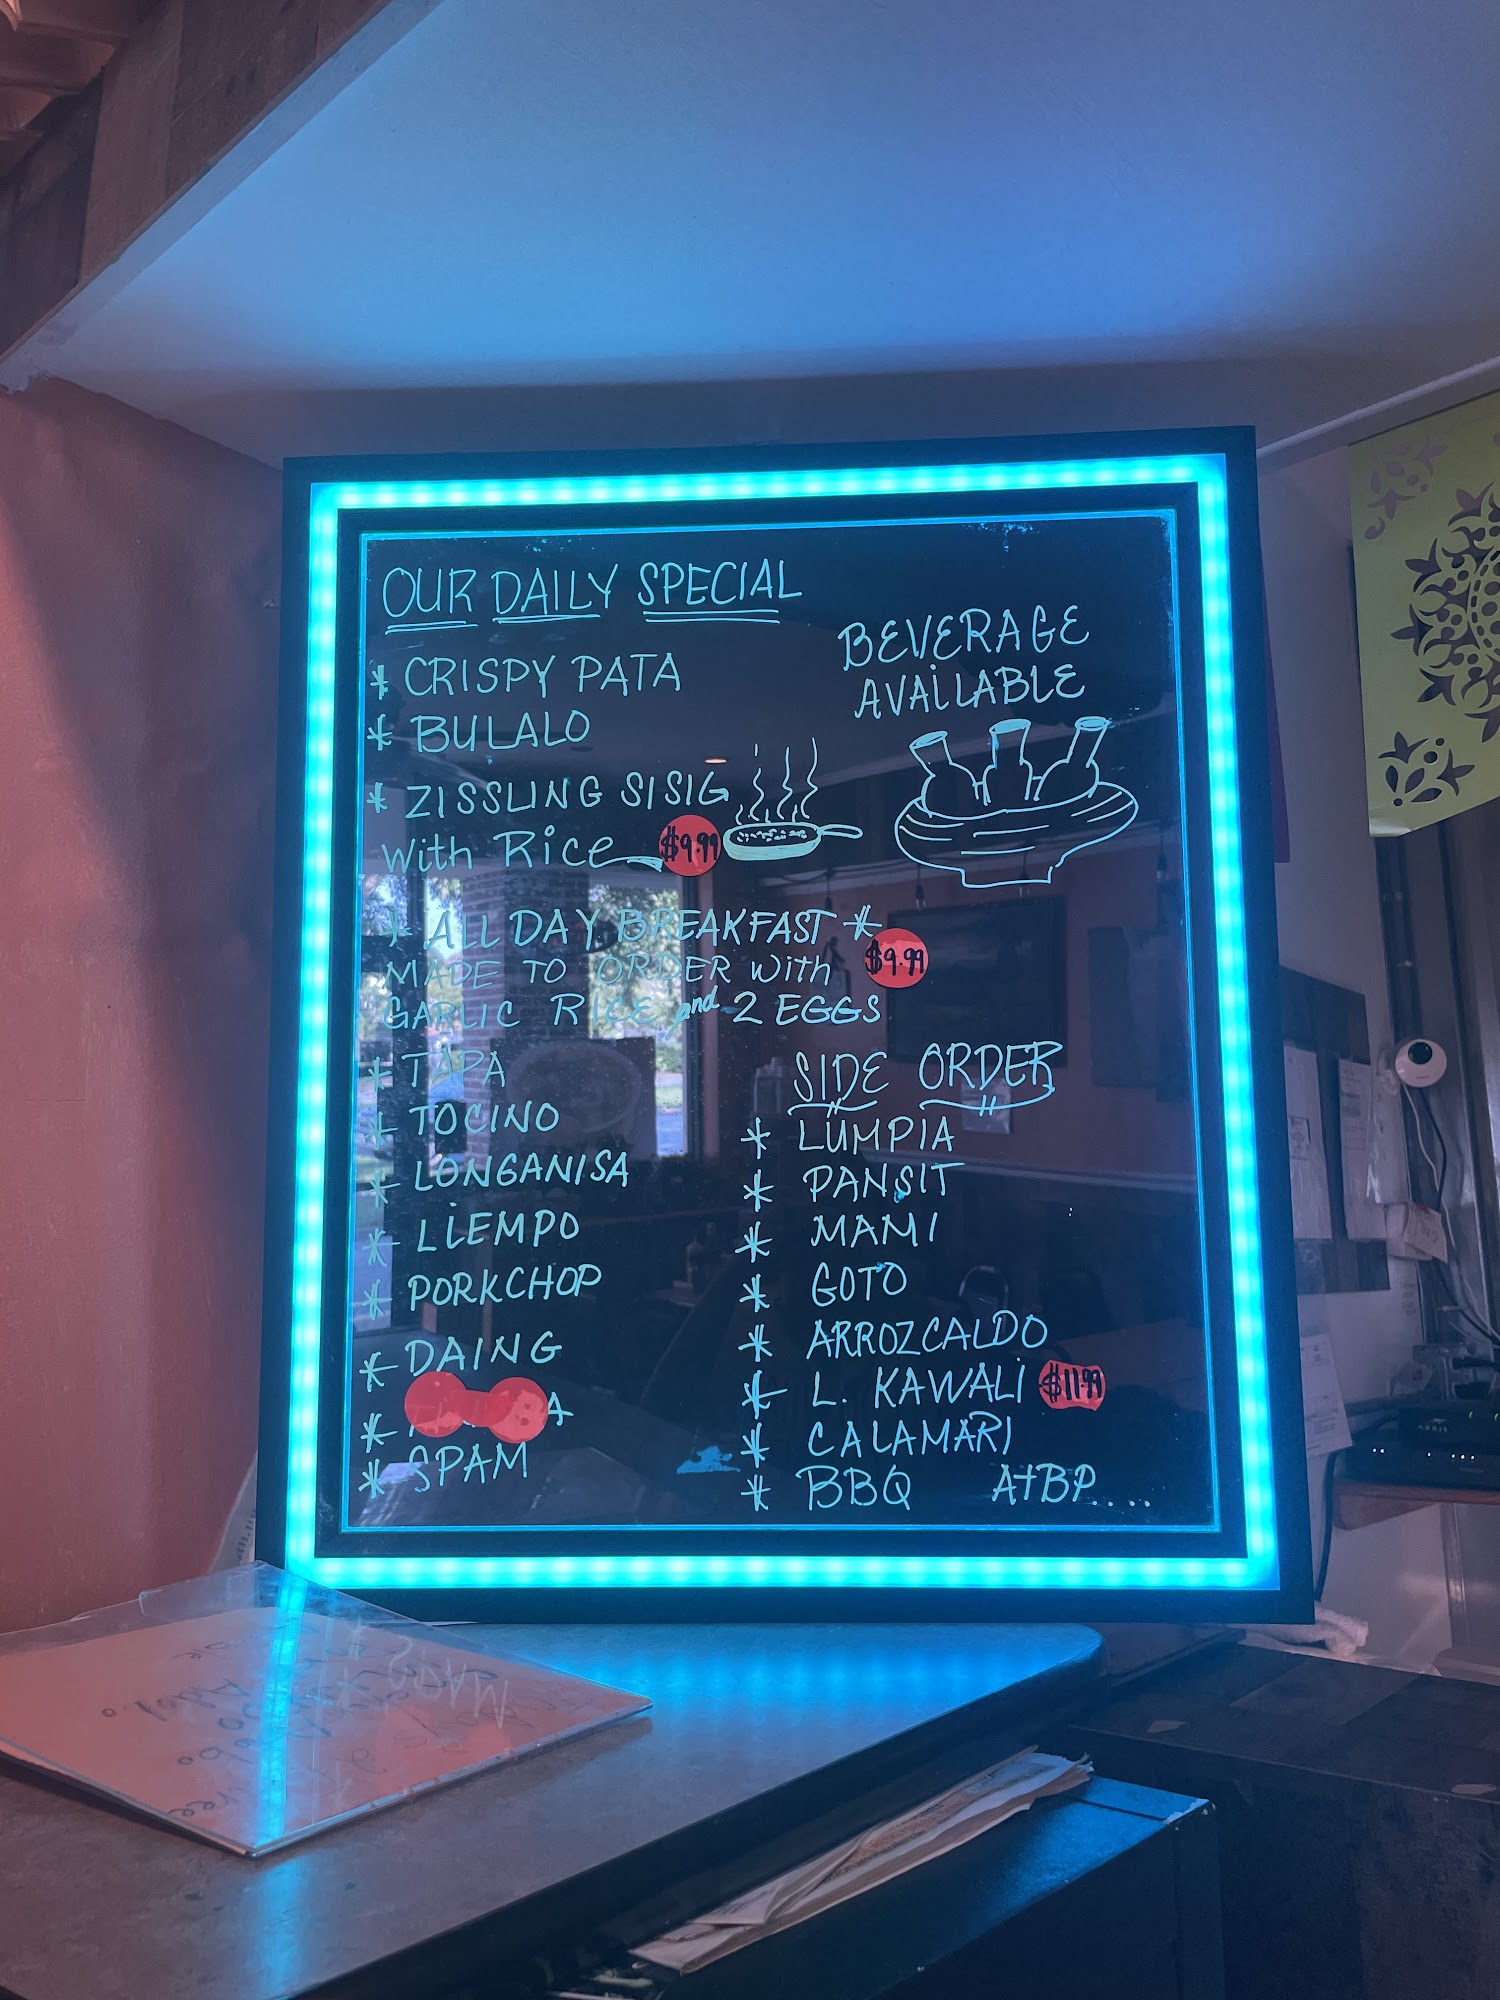 OUR DAILY SPECIAL
* CRISPY PATA
* BULALO
* ZISSLING SISIG
with Rice $9.99
BEVERAGE
AVAILABLE
* ALL DAY BREAKFAST *
MADE TO ORDER with $9.99
GARLIC RICE and 2 EGGS
* TAPA
* TOCINO
* LONGANISA
* LIEMPO
* PORKCHOP
* DAING
* SPAM
SIDE ORDER
* LUMPIA
* PANSIT
* MAMI
* GOTO
* ARROZCALDO
* L. KAWALI $11.99
* CALAMARI
* BBQ ATBP....